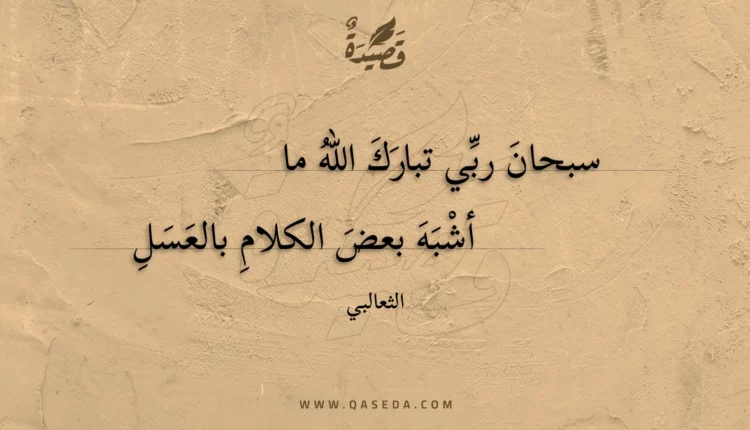 قَصِيدَةٌ
سبحانَ ربِّي تبارَكَ اللهُ ما
أشْبَهَ بعضَ الكلامِ بالعَسَلِ
الثعالبي
WWW.QASEDA.COM